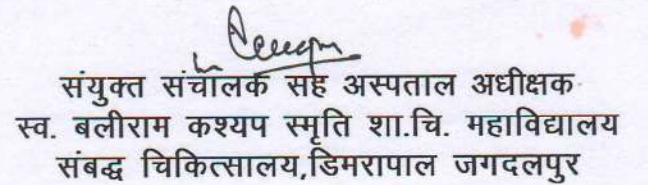 संयुक्त संचालक सह अस्पताल अधीक्षक
स्व. बलीराम कश्यप स्मृति शा.चि. महाविद्यालय
संबद्ध चिकित्सालय,डिमरापाल जगदलपुर